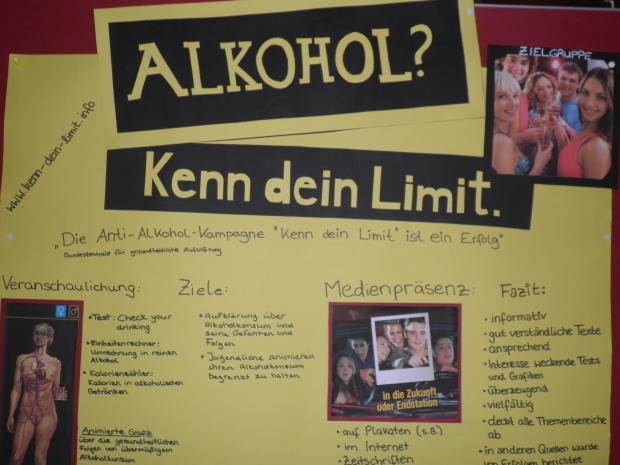 ALKOHOL?
ZIELGRUPPE
www.kenn-dein-limit.info
Kenn dein Limit.
"Die Anti-Alkohol-Kampagne "Kenn dein Limit" ist ein Erfolg"
Bundeszentrale für gesundheitliche Aufklärung
Veranschaulichung:
• Test: Check your
drinking
• Einheitenrechner:
Umrechnung in reinen
Alkohol
• Kalorienzähler:
Kalorien in alkoholischen
Getränken
Animierte Grafik
über die gesundheitlichen
Folgen von übermäßigem
Alkoholkonsum
Ziele:
• Aufklärung über
Alkoholkonsum und
seine Gefahren und
Folgen
• Jugendliche animieren
ihren Alkoholkonsum
begrenzt zu halten
Medienpräsenz:
In die Zukunft
oder Endstation
• auf Plakaten (s.o.)
• im Internet
• Zeitschriften
Fazit:
• informativ
• gut verständliche Texte
• ansprechend
• Interesse weckende Tests
und Grafiken
• überzeugend
• vielfältig
• deckt alle Themenbereiche
ab
• in anderen Quellen wurde
von Erfolgen berichtet